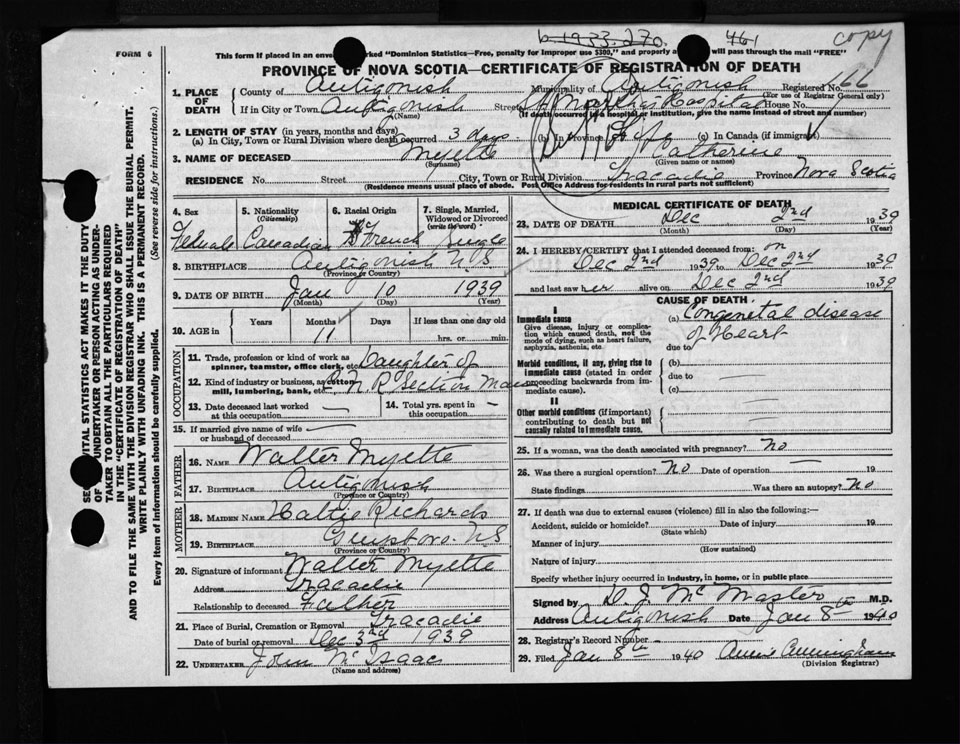 b 1933-270. 461 copy
FORM 6
This form if placed in an enve ked "Dominion Statistics—Free, penalty for improper use $300," and properly a will pass through the mail "FREE"
PROVINCE OF NOVA SCOTIA—CERTIFICATE OF REGISTRATION OF DEATH
SE VITAL STATISTICS ACT MAKES IT THE DUTY
OF UNDERTAKER OR PERSON ACTING AS UNDER-
TAKER TO OBTAIN ALL THE PARTICULARS REQUIRED
IN THE "CERTIFICATE OF REGISTRATION OF DEATH"
AND TO FILE THE SAME WITH THE DIVISION REGISTRAR WHO SHALL ISSUE THE BURIAL PERMIT.
WRITE PLAINLY WITH UNFADING INK. THIS IS A PERMANENT RECORD.
Every item of information should be carefully supplied. (See reverse side for instructions.)
1. PLACE OF DEATH County of Antigonish Municipality of Antigonish Registered No. 466
(For use of Registrar General only)
If in City or Town Antigonish Street St Marthas Hospital House No.
(Name) (If death occurred in a hospital or institution, give the name instead of street and number)
2. LENGTH OF STAY (in years, months and days)
(a) In City, Town or Rural Division where death occurred 3 days (b) In Province Life (c) In Canada (if immigrant)
3. NAME OF DECEASED Myette Catherine
(Surname) (Given name or names)
RESIDENCE No. Street City, Town or Rural Division Tracadie Province Nova Scotia
(Residence means usual place of abode. Post Office Address for residents in rural parts not sufficient)
4. Sex Female
5. Nationality (Citizenship) Canadian
6. Racial Origin French
7. Single, Married, Widowed or Divorced (write the word) Single
8. BIRTHPLACE Antigonish N.S
(Province or Country)
9. DATE OF BIRTH Jan 10 1939
(Month) (Day) (Year)
10. AGE in Years Months 11 Days If less than one day old
hrs. or min.
OCCUPATION
11. Trade, profession or kind of work as spinner, teamster, office clerk, etc. Daughter of
12. Kind of industry or business, as cotton mill, lumbering, bank, etc. C N R Section Man
13. Date deceased last worked at this occupation — 14. Total yrs. spent in this occupation. —
15. If married give name of wife or husband of deceased —
FATHER
16. NAME Walter Myette
17. BIRTHPLACE Antigonish
(Province or Country)
MOTHER
18. MAIDEN NAME Hattie Richards
19. BIRTHPLACE Guysboro. N.S
(Province or Country)
20. Signature of informant Walter Myette
Address Tracadie
Relationship to deceased Father
21. Place of Burial, Cremation or Removal Tracadie
Date of burial or removal Dec 3rd 1939
22. UNDERTAKER John McIsaac
(Name and address)
MEDICAL CERTIFICATE OF DEATH
23. DATE OF DEATH Dec 2nd 1939
(Month) (Day) (Year)
24. I HEREBY CERTIFY that I attended deceased from: on
Dec 2nd 1939 to Dec 2nd 1939
and last saw her alive on Dec 2nd 1939
CAUSE OF DEATH
I
Immediate cause
Give disease, injury or complication which caused death, not the mode of dying, such as heart failure, asphyxia, asthenia, etc.
(a) Congenital disease
of Heart
due to
Morbid conditions, if any, giving rise to immediate cause (stated in order proceeding backwards from immediate cause).
(b) —
due to —
(c) —
II
Other morbid conditions (if important) contributing to death but not causally related to immediate cause.
25. If a woman, was the death associated with pregnancy? No
26. Was there a surgical operation? No Date of operation — 19
State findings Was there an autopsy? No
27. If death was due to external causes (violence) fill in also the following:—
Accident, suicide or homicide? Date of injury 19
(State which)
Manner of injury
(How sustained)
Nature of injury
Specify whether injury occurred in industry, in home, or in public place
Signed by D. J. McMaster M.D.
Address Antigonish Date Jan 8th 1940
28. Registrar's Record Number —
29. Filed Jan 8th 1940 Annie Cunningham
(Division Registrar)